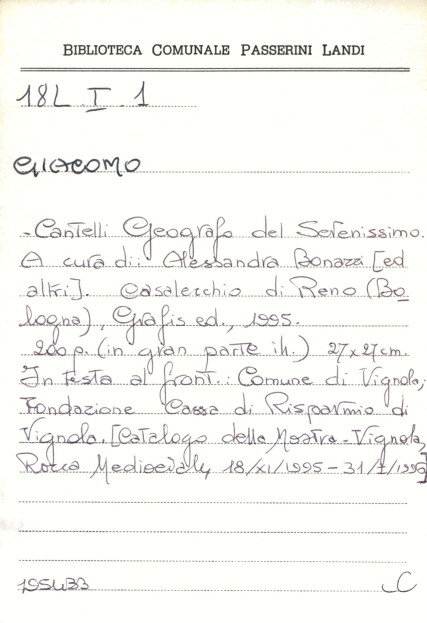 BIBLIOTECA COMUNALE PASSERINI LANDI
18L I 1
GIACOMO
-Cantelli Geografo del Serenissimo.
A cura di: Alessandra Bonazzi [ed
altri]. Casalecchio di Reno (Bo
logna), Grafis ed., 1995.
200 p. (in gran parte ill.) 27x27 cm.
In testa al front.: Comune di Vignola,
Fondazione Cassa di Risparmio di
Vignola. [Catalogo della Mostra - Vignola,
Rocca Medioevale, 18/XI/1995 - 31/1/1996]
195433
C